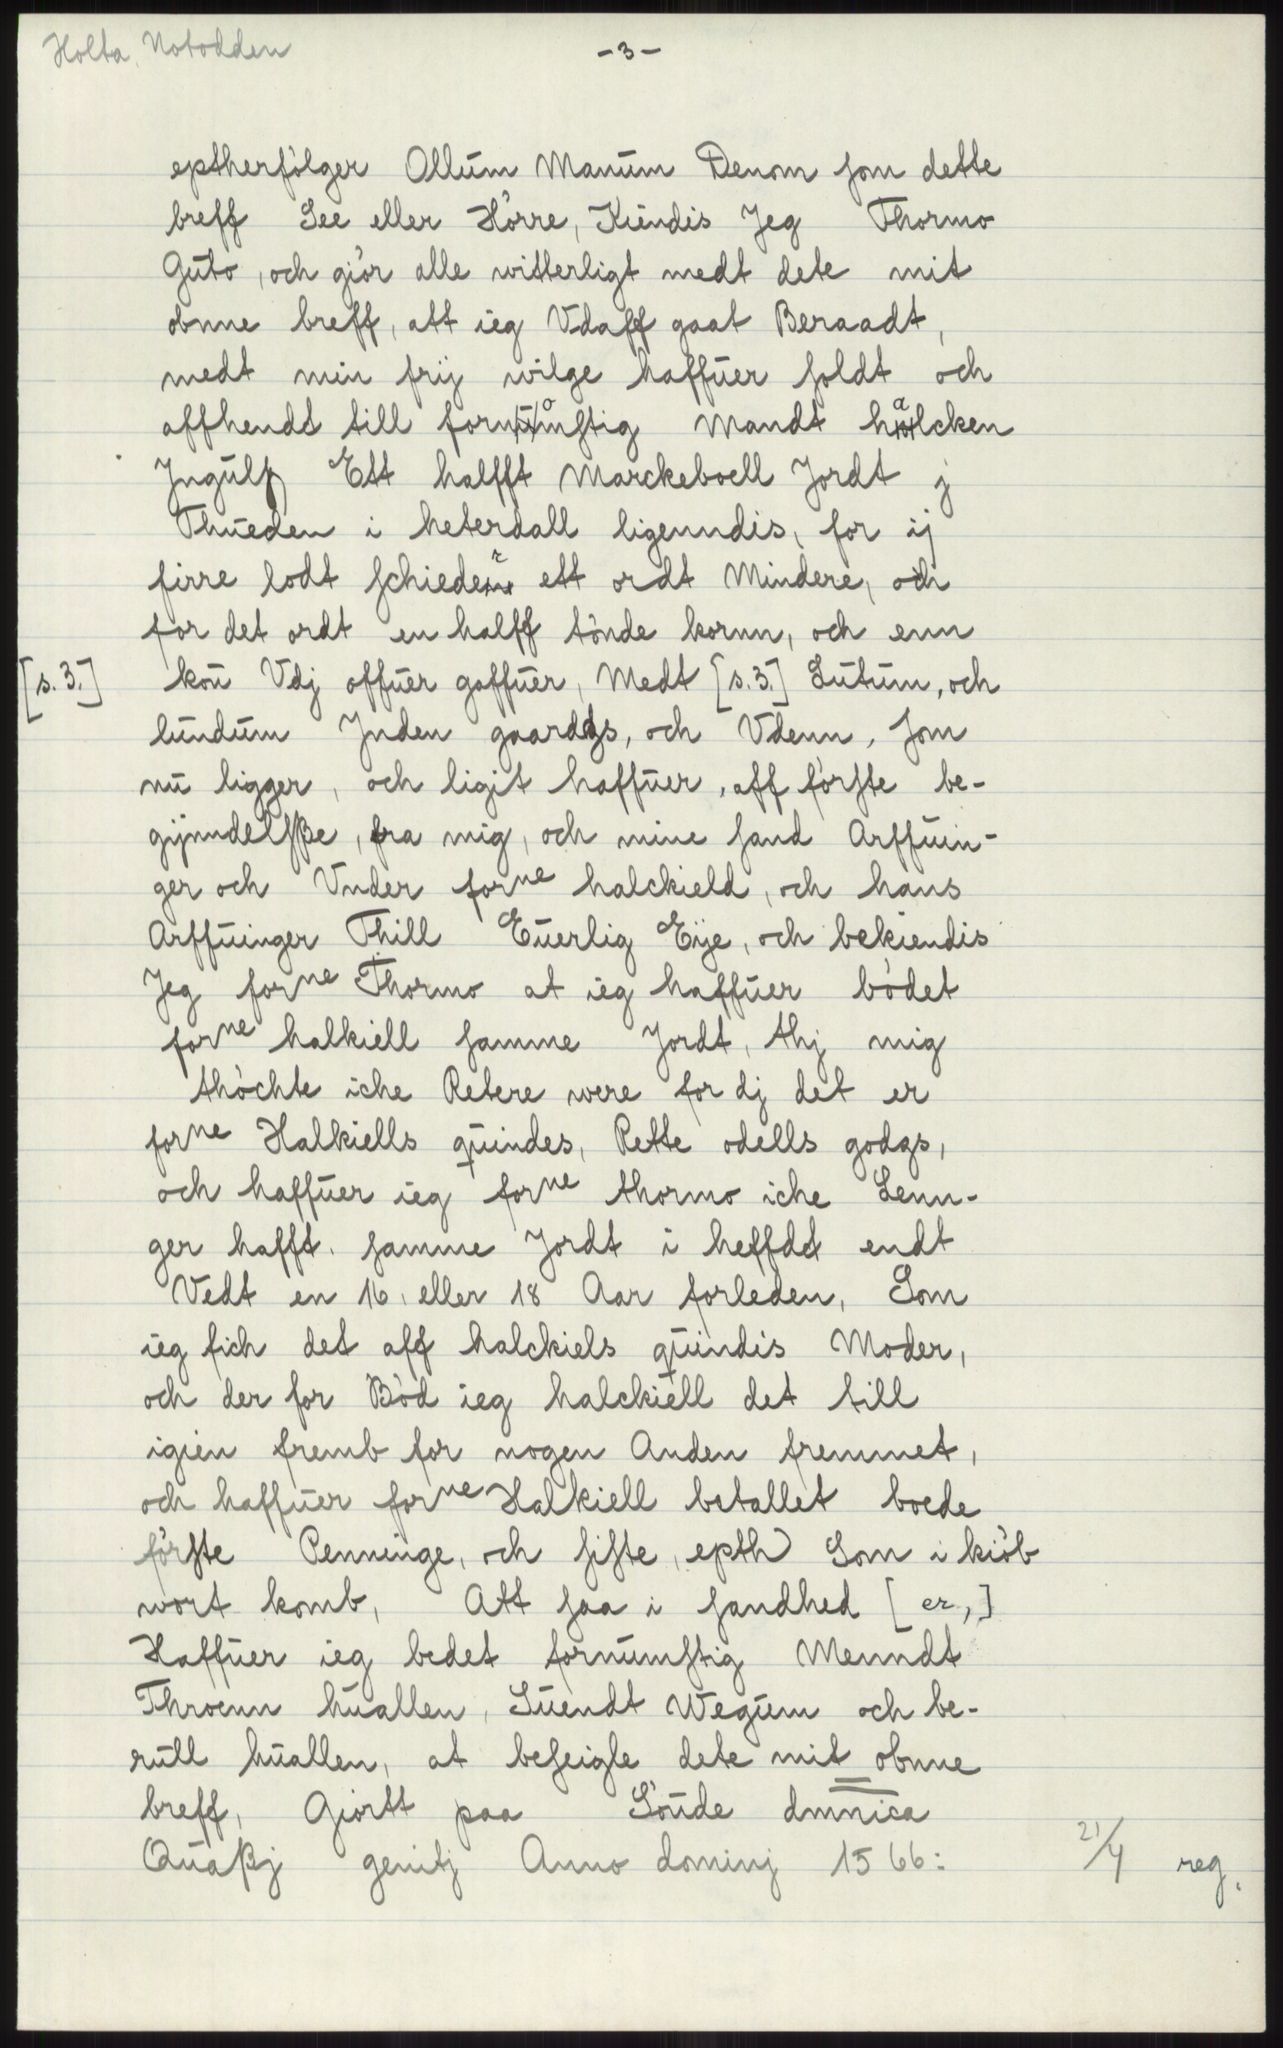 Holta, Notodden
-3-
eptherfölger Ollum Manum Denom som dette
breff See eller Hörre, Kiendis Jeg Thormo
Guto, och giör alle witterligt medt dete mit
obnne breff, att ieg Vdaff gaat Beraadt,
medt min frij wilge haffuer soldt och
affhendt till fornomstig Mandt halcken
Jngulff Ett halfft Marckeboell Jordt j
Thueden i heterdall ligenndis, for ij
firre lodt schieder ett ordt Mindere, och
for det ordt en halff tönde kornn, och enn
[s. 3.] kou Vdj offuer gaffuer, Medt [s. 3.] Lutum, och
lundum Jnden gaardgs, och Vdenn, som
nu ligger, och ligit haffuer, aff förste be-
gijnndelsße, fra mig, och mine sand Arffuin-
ger och Vnder forne halckield, och hans
Arffuinger Thill Euerlig Eije, och bekiendis
Jeg forne Thormo at ieg haffuer bödet
forne halkiell samme Jordt, thj mig
thöchte iche Retere were for dj det er
forne Halkiells quindes, Rette odells godgs,
och haffuer ieg forne thormo iche Lenn-
ger hafft samme Jordt i heffdt endt
Vedt en 16, eller 18 Aar forleden, Som
ieg fich det aff halckiels quindis Moder,
och der for Böd ieg halckiell det till
igien fremb for nogen Anden fremmet,
och haffuer forne Halkiell betallet boede
förste Penninge, och siste, epth Som i kiöb
wort komb, Att saa i sandhed [er,]
Haffuer ieg bedet fornumstig Menndt
Throenn huallen, Suendt Wegum och be-
rull huallen, at beseigle dete mit obnne
breff, Giortt paa Söude dmnica
Quaßj genitj Anno dominj 1566:
21/4 reg.